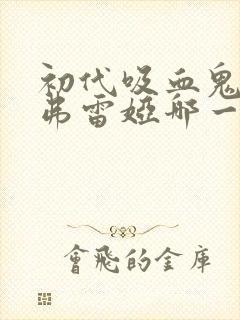 初代吸血鬼
弗雷婭那一
會飛的金庫